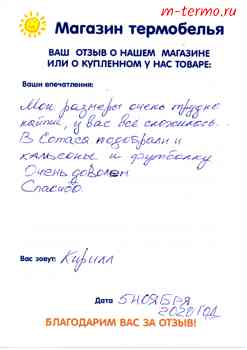 m-termo.ru
Магазин термобелья
ВАШ ОТЗЫВ О НАШЕМ МАГАЗИНЕ
ИЛИ О КУПЛЕННОМ У НАС ТОВАРЕ:
Ваши впечатления:
Мои размеры очень трудно
найти, у вас всё сложилось.
В Сотаса подобрали
кальсоны и футболку
Очень доволен
Спасибо.
Вас зовут: Кирилл
Дата 5 НОЯБРЯ
2020 ГОД
БЛАГОДАРИМ ВАС ЗА ОТЗЫВ!